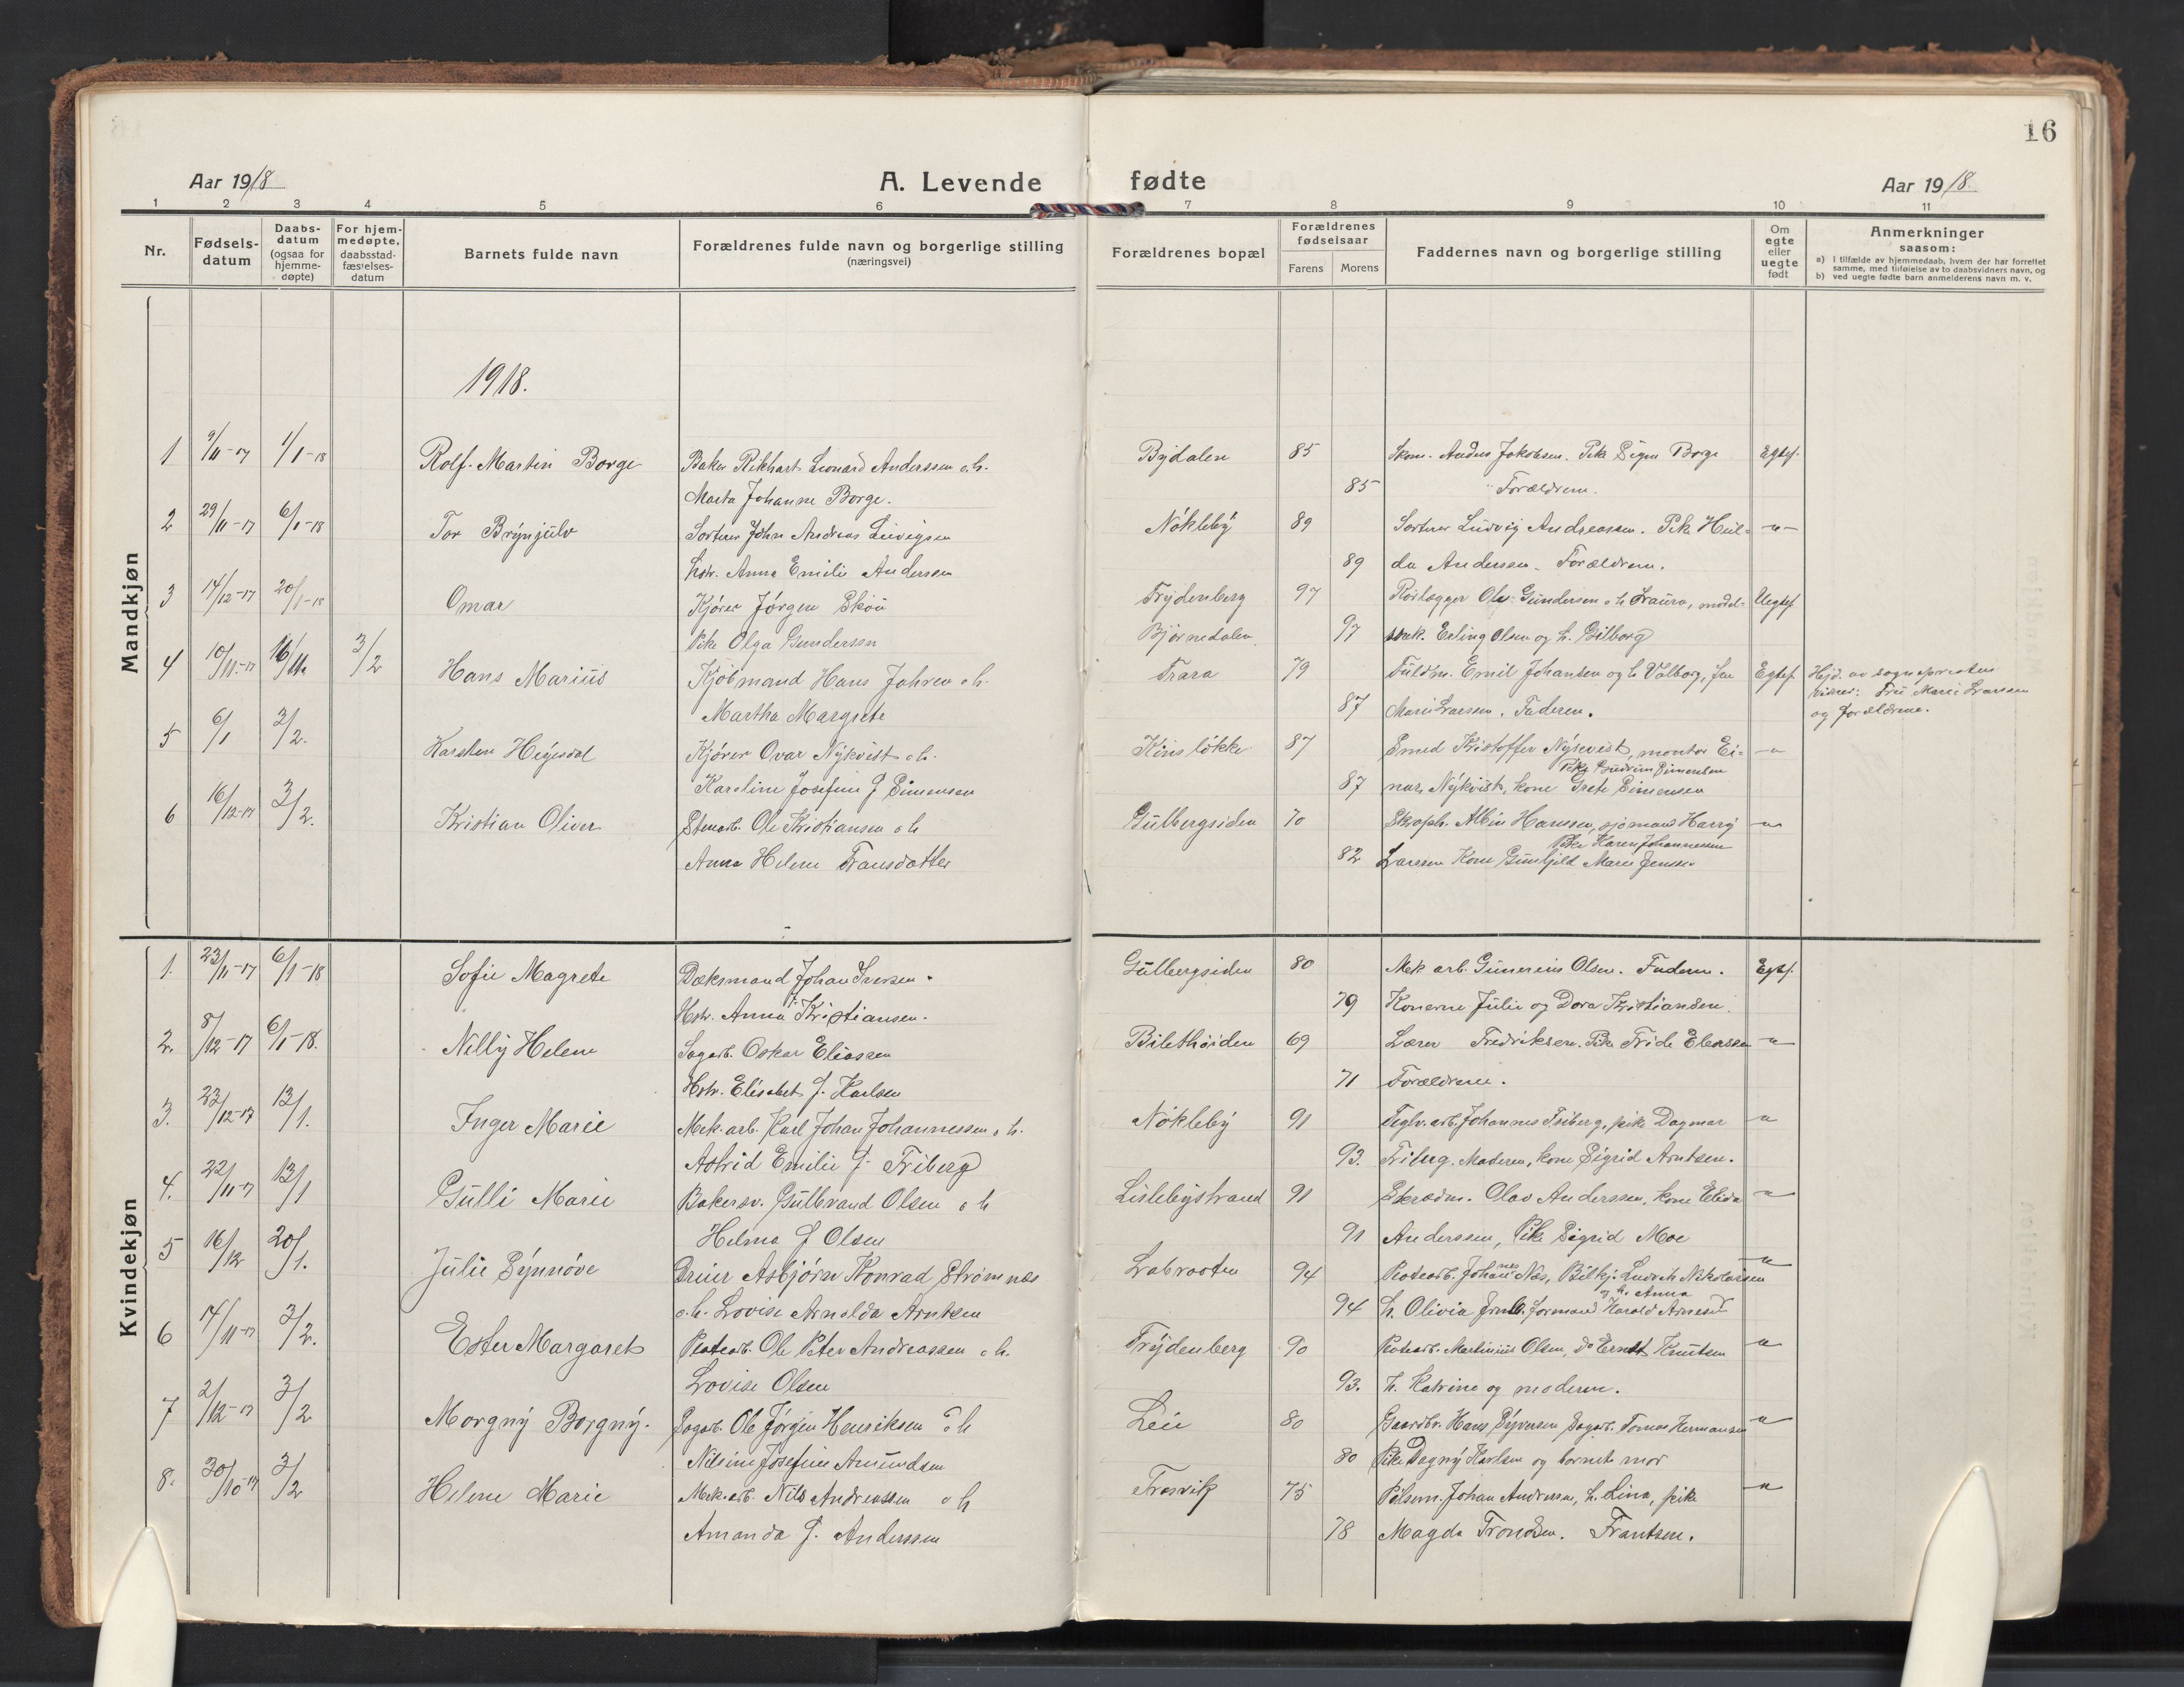 16
Aar 1918
A. Levende fødte
Aar 1918.
1 2 3 4 5 6 7 8 9 10 11
Nr.
Fødsels-
datum
Daabs-
datum
(ogsaa for
hjemme-
døpte)
For hjem-
medøpte,
daabsstad-
fæstelses-
datum
Barnets fulde navn
Forældrenes fulde navn og borgerlige stilling
(næringsvei)
Forældrenes bopæl
Forældrenes
fødselsaar
Farens Morens
Faddernes navn og borgerlige stilling
Om
egte
eller
uegte
født
Anmerkninger
saasom:
a) I tilfælde av hjemmedaab, hvem der har forrettet
samme, med tilføielse av to daabsvidners navn, og
b) ved uegte fødte barn anmelderens navn m. v.
1918.
Mandkjøn
1 9/11-17 1/1-18 Rolf Martin Borge Baker Rikhart Leonard Anderssen o.h. Bydalen 85 Skom. Anders Jakobsen. Pike Signe Borge Egtef.
Marta Johanne Borge. 85 Forældrene.
2 29/11-17 6/1-18 Tor Brynjulv Sorterer Johan Andreas Ludvigsen Nökleby 89 Sorterer Ludvig Andreassen. Pike Hul= -"-
hstr. Anna Emilie Andersen 89 da Andersen. Forældrene.
3 14/12-17 20/1-18 Omar Kjører Jørgen Skou Frydenberg 97 Rörlægger Ole Gundersen o h Laura, Uegtef
Pike Olga Gundersen Bjørnedalen 97 Erling Olsen og h.
4 10/11-17 16/11 3/2 Hans Marius Kjöbmand Hans Johren o h. Trara 79 Fuldm. Emil Johansen og h Valborg, fru Egtef. Hjd. av sognepresten
Martha Margrete 87 Marie Larssen. Faderen. Vidner: Fru Marie Larssen
og forældrene.
5 6/1 3/2. Karsten Heyerdal Kjører Ovar Nykvist o h. Kirisløkke 87 Smed Kristoffer Nykvist, montør Ei= -"-
Pike Gudrun Simensen
Karoline Josefine J Simensen 87 nar Nykvist, kone Grete Simensen
6 16/12-17 3/2. Kristian Oliver Stenarb. Ole Kristiansen o h Gulbergsiden 70 Albin Hanssen, sjømand Harry -"-
Pike Karen Johannessen
Anna Helene Fransdatter 82 Larssen Kone Gunhild Marie Jensen
Kvindekjøn
1. 23/11-17 6/1-18 Sofie Magrete Dæksmand Johan Iversen. Gulbergsiden 80 Mek arb. Gunerius Olsen. Faderen. Egtef.
Hstr. Anna Kristiansen. 79 Konerne Julie og Dora Kristiansen.
2. 8/12-17 6/1-18. Nilly Helene Sagarb. Oskar Eliassen Bilethøiden 69 Lærer Fredriksen. Pike Frida Eliassen -"-
Hstr. Elisabet J. Karlsen 71 Forældrene.
3. 23/12-17 13/1. Inger Marie Mek. arb. Karl Johan Johannessen o h. Nökleby 91 Teglv.arb. Johannes Friberg, pike Dagmar -"-
Astrid Emilie J. Friberg 93. Friberg. Moderen, kone Sigrid Arntsen.
4. 22/11-17 13/1 Gulli Marie Bakersv. Gulbrand Olsen o h Lislebystrand 91 Skrædm. Olav Anderssen, kone Elida -"-
Helma J Olsen 91 Anderssen, Pike Sigrid Moe
5 16/12 20/1. Julie Synnöve Dreier Asbjørn Konrad Strømnæs Labraaten 94 Johannes Næs, Ludvik Nikolaisen -"-
og h. Anna
o.h. Lovise Arnolda Arntsen 94 h. Olivia formand Harald Arnesen
6 14/11-17 3/2. Ester Margaret Ole Peter Andreassen o h. Frydenberg 90 Martinius Olsen, Do Ernst Knutsen -"-
Lovise Olsen 93. h. Katrine og moderen.
7 2/12-17 3/2 Morgny Borgny. Sagarb. Ole Jørgen Henriksen o h Leie 80 Gaardbr. Hans Syversen, Sagarb. Tomas Hermansen -"-
Nilsine Josefine Amundsen 80 Pike Dagny Karlsen og barnets mor
8. 30/10-17 3/2 Helene Marie Mek. arb. Nils Andreassen o h Trosvik 75 Johan Anderssen, h. Lina, pike -"-
Amanda J. Anderssen 78 Magda Trondsen. Frantsen.